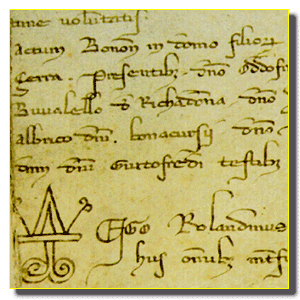 tune voluntatis.
Actum Bonon in domo filiorum
Gerra. presentibus. dno Oddofr
Buvalello d Richadonna. dno
Albrico dni. bonacursii dno
dni Guttofredi testibus
Ego Rolandinus
huis omnibus interfui